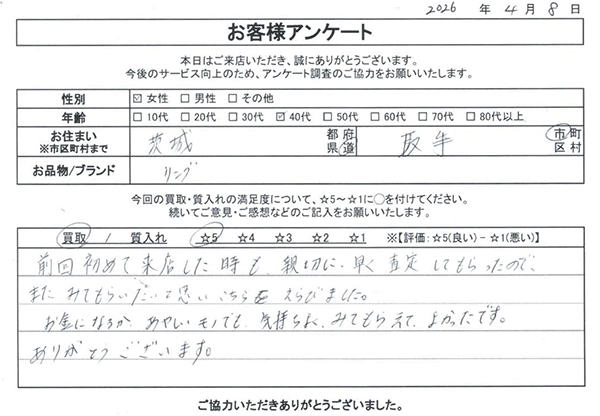 2026 年 4 月 8 日
お客様アンケート
本日はご来店いただき、誠にありがとうございます。
今後のサービス向上のため、アンケート調査のご協力をお願いいたします。
性別 ☑ 女性 □ 男性 □ その他
年齢 □ 10代 □ 20代 □ 30代 ☑ 40代 □ 50代 □ 60代 □ 70代 □ 80代以上
お住まい 茨城 都 府 取手 市 町
※市区町村まで 県 道 区 村
お品物/ブランド リング
今回の買取・質入れの満足度について、☆5～☆1に○を付けてください。
続いてご意見・ご感想などのご記入をお願いいたします。
買取 / 質入れ ☆5 ☆4 ☆3 ☆2 ☆1 ※【評価:☆5(良い)-☆1(悪い)】
前回初めて来店した時も、親切に、早く査定してもらったので、
またみてもらいたいと思いこちらをえらびました。
お金になるか、あやしいモノでも、気持ちよく、みてもらえて、よかったです。
ありがとうございます。
ご協力いただきありがとうございました。